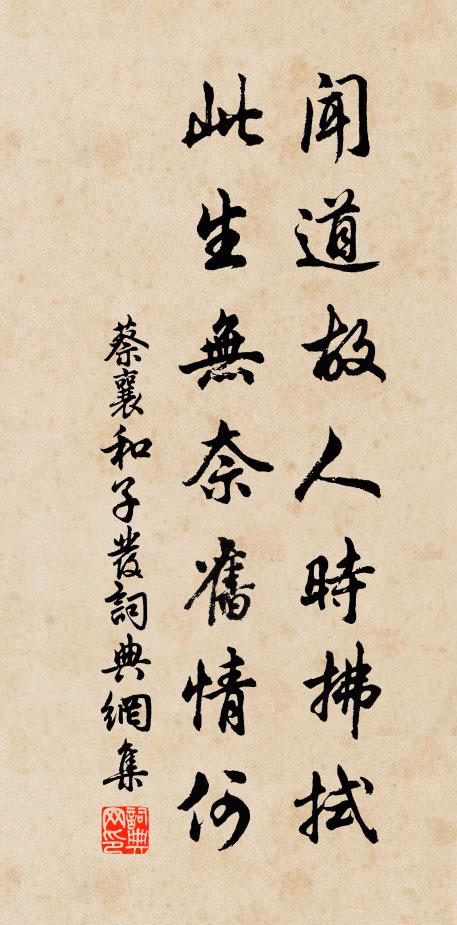 聞道故人時拂拭
此生無奈舊情何
蔡襄和子發詞典網集
詞典網印